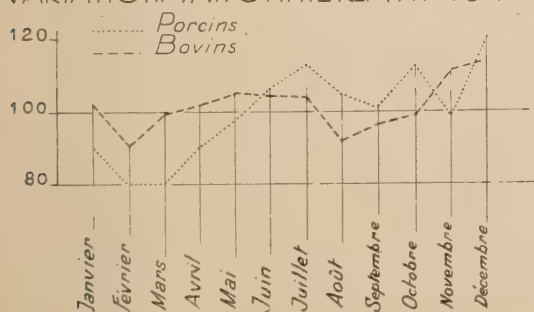 Porcins
Bovins
120
100
80
Janvier
Février
Mars
Avril
Mai
Juin
Juillet
Août
Septembre
Octobre
Novembre
Décembre